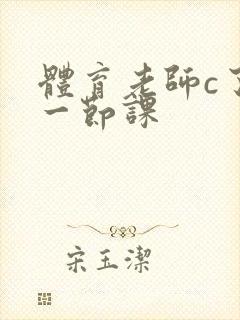 體育老師c了
一節課
宋玉潔